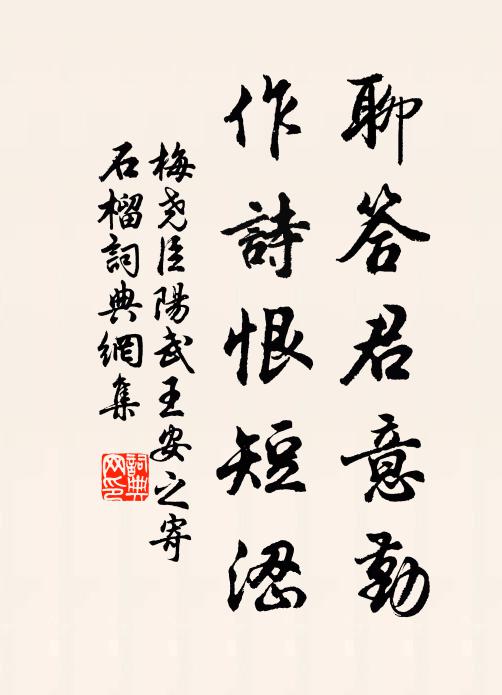 聊答君意勤
作詩恨短澀
梅堯臣陽武王安之寄
石榴詞典網集
詞典
网印